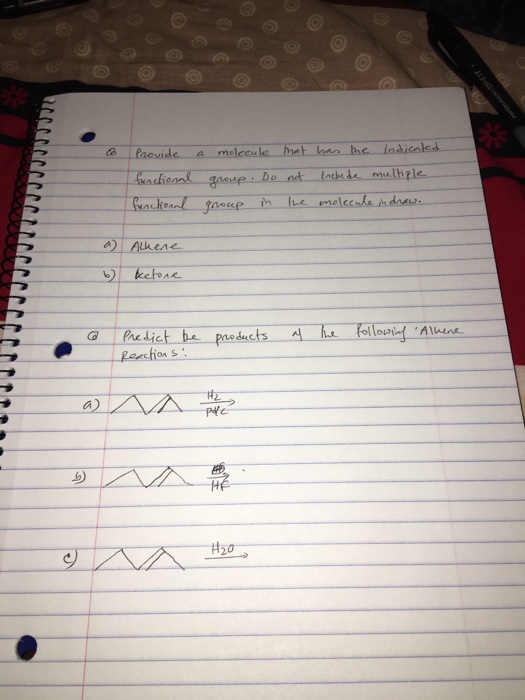 Q Provide a molecule that has the indicated
functional group. Do not Include multiple
functional group in the molecule in draw.
a) Alkene
b) ketone
Q Predict the products of the following Alkene
Reactions:
a) H2
Pd/C
b) HF
c) H2O